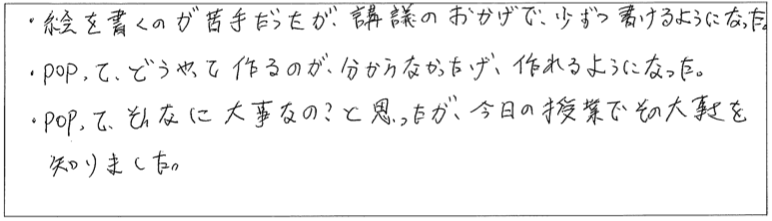 ・絵を書くのが苦手だったが、講議のおかげで、少しずつ書けるようになった。
・POPって、どうやって作るのが、分からなかったげ、作れるようになった。
・POPって、そんなに大事なの？と思ったが、今日の授業でその大事さを
知りました。